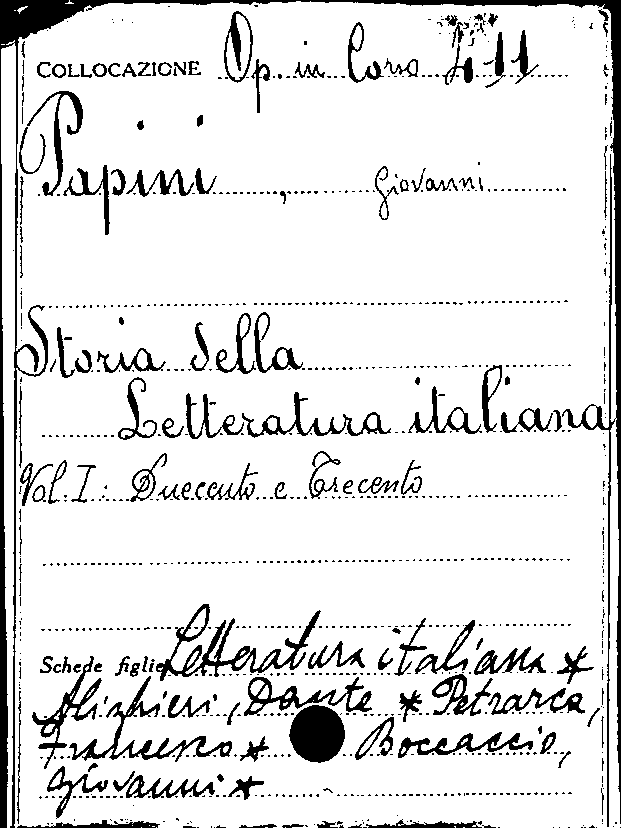 COLLOCAZIONE Op. in Corso 411
Papini, Giovanni
Storia della
Letteratura italiana
Vol. I: Duecento e Trecento
Schede figlie Letteratura italiana *
Alighieri, Dante * Petrarca,
Francesco * Boccaccio,
Giovanni *